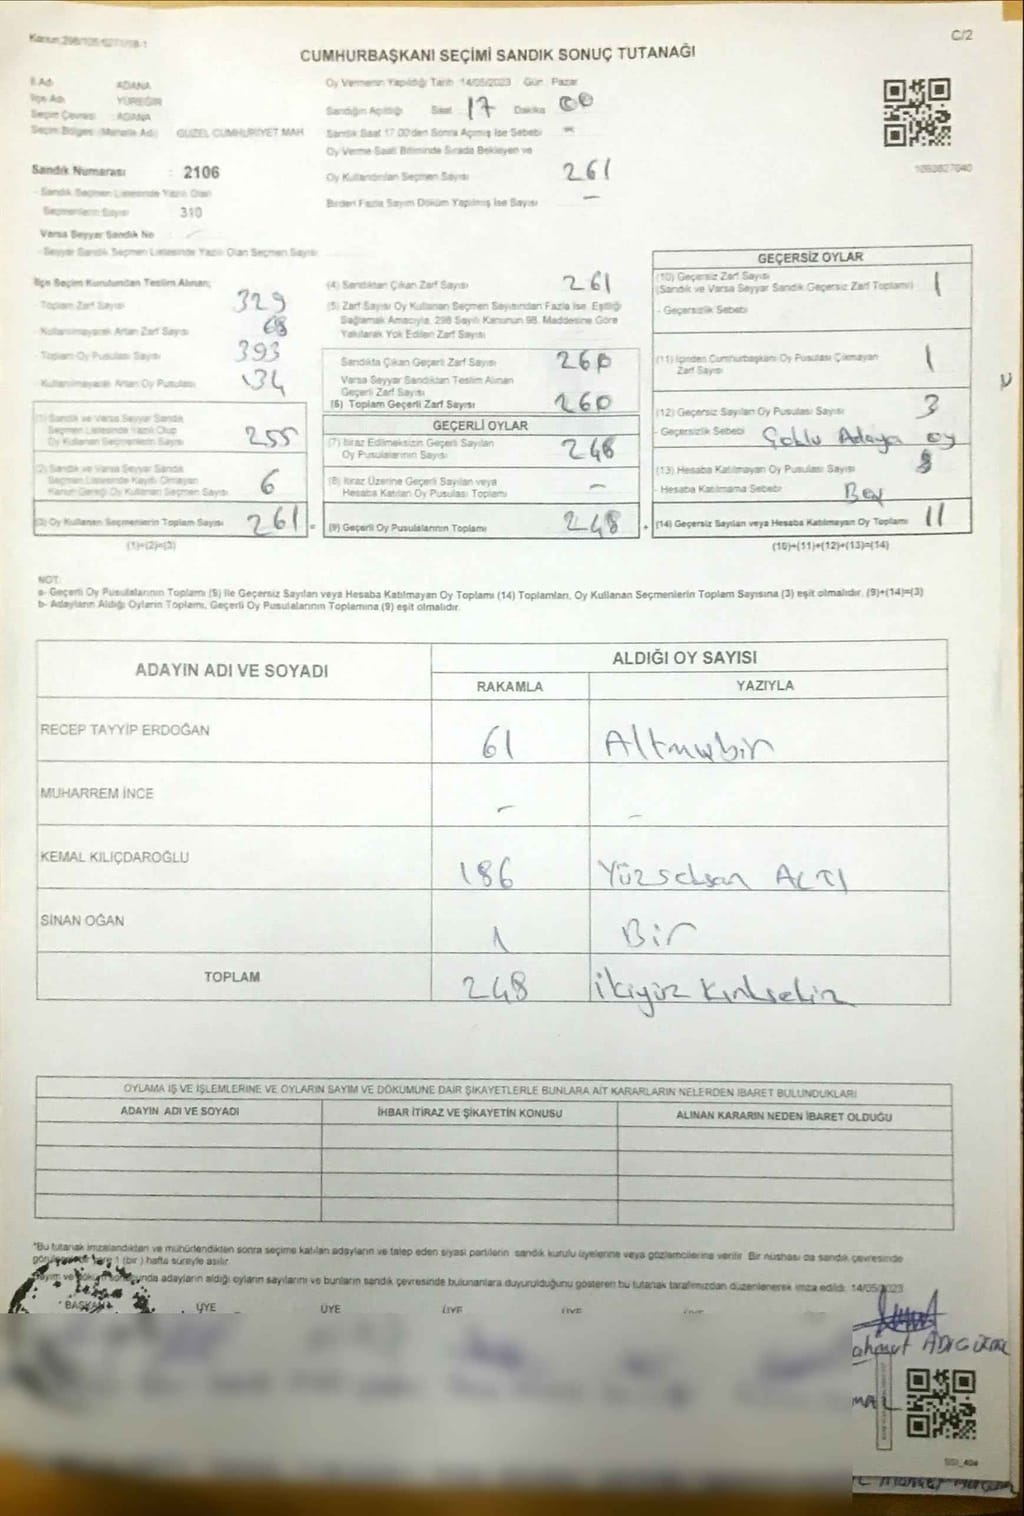 C/2
CUMHURBAŞKANI SEÇİMİ SANDIK SONUÇ TUTANAĞI
İl Adı ADANA
İlçe Adı YÜREĞİR
Seçim Çevresi : ADANA
Seçim Bölgesi (Mahalle Adı) GÜZEL CUMHURİYET MAH
Sandık Numarası : 2106
- Sandık Seçmen Listesinde Yazılı Olan
Seçmenlerin Sayısı 310
Varsa Seyyar Sandık No
- Seyyar Sandık Seçmen Listesinde Yazılı Olan Seçmen Sayısı
Oy Vermenin Yapıldığı Tarih 14/05/2023 Gün : Pazar
Sandığın Açıldığı Saat 17 Dakika 00
Sandık Saat 17.00'den Sonra Açılmış İse Sebebi -
Oy Verme Saati Bitiminde Sırada Bekleyen ve
Oy Kullandırılan Seçmen Sayısı 261
Birden Fazla Sayım Döküm Yapılmış İse Sayısı -
İlçe Seçim Kurulundan Teslim Alınan;
- Toplam Zarf Sayısı 329
- Kullanılmayarak Artan Zarf Sayısı 68
- Toplam Oy Pusulası Sayısı 393
- Kullanılmayarak Artan Oy Pusulası 134
(1) Sandık ve Varsa Seyyar Sandık
Seçmen Listesinde Yazılı Olup
Oy Kullanan Seçmenlerin Sayısı 255
(2) Sandık ve Varsa Seyyar Sandık
Seçmen Listesinde Kayıtlı Olmayan
Kanun Gereği Oy Kullanan Seçmen Sayısı 6
(3) Oy Kullanan Seçmenlerin Toplam Sayısı 261 =
(1)+(2)=(3)
(4) Sandıktan Çıkan Zarf Sayısı 261
(5) Zarf Sayısı Oy Kullanan Seçmen Sayısından Fazla İse, Eşitliği
Sağlamak Amacıyla, 298 Sayılı Kanunun 98. Maddesine Göre
Yakılarak Yok Edilen Zarf Sayısı
Sandıkta Çıkan Geçerli Zarf Sayısı 260
Varsa Seyyar Sandıktan Teslim Alınan
Geçerli Zarf Sayısı
(6) Toplam Geçerli Zarf Sayısı 260
GEÇERLİ OYLAR
(7) İtiraz Edilmeksizin Geçerli Sayılan
Oy Pusulalarının Sayısı 248
(8) İtiraz Üzerine Geçerli Sayılan veya
Hesaba Katılan Oy Pusulası Toplamı -
(9) Geçerli Oy Pusulalarının Toplamı 248 +
GEÇERSİZ OYLAR
(10) Geçersiz Zarf Sayısı 1
(Sandık ve Varsa Seyyar Sandık Geçersiz Zarf Toplamı)
- Geçersizlik Sebebi
(11) İçinden Cumhurbaşkanı Oy Pusulası Çıkmayan 1
Zarf Sayısı
(12) Geçersiz Sayılan Oy Pusulası Sayısı 3
- Geçersizlik Sebebi Çoklu Adaya oy
(13) Hesaba Katılmayan Oy Pusulası Sayısı
- Hesaba Katılmama Sebebi Boş
(14) Geçersiz Sayılan veya Hesaba Katılmayan Oy Toplamı 11
(10)+(11)+(12)+(13)=(14)
NOT:
a- Geçerli Oy Pusulalarının Toplamı (9) İle Geçersiz Sayılan veya Hesaba Katılmayan Oy Toplamı (14) Toplamları, Oy Kullanan Seçmenlerin Toplam Sayısına (3) eşit olmalıdır. (9)+(14)=(3)
b- Adayların Aldığı Oyların Toplamı, Geçerli Oy Pusulalarının Toplamına (9) eşit olmalıdır.
ADAYIN ADI VE SOYADI ALDIĞI OY SAYISI
RAKAMLA YAZIYLA
RECEP TAYYİP ERDOĞAN 61 Altmışbir
MUHARREM İNCE - -
KEMAL KILIÇDAROĞLU 186 Yüzseksan ALTI
SİNAN OĞAN 1 Bir
TOPLAM 248 İkiyüz Kırksekiz
OYLAMA İŞ VE İŞLEMLERİNE VE OYLARIN SAYIM VE DÖKÜMÜNE DAİR ŞİKAYETLERLE BUNLARA AİT KARARLARIN NELERDEN İBARET BULUNDUKLARI
ADAYIN ADI VE SOYADI İHBAR İTİRAZ VE ŞİKAYETİN KONUSU ALINAN KARARIN NEDEN İBARET OLDUĞU
*Bu tutanak imzalandıktan ve mühürlendikten sonra seçime katılan adayların ve talep eden siyasi partilerin sandık kurulu üyelerine veya gözlemcilerine verilir. Bir nüshası da sandık çevresinde
1 (bir) hafta süreyle asılır.
adayların aldığı oyların sayılarını ve bunların sandık çevresinde bulunanlara duyurulduğunu gösteren bu tutanak tarafımızdan düzenlenerek imza edildi. 14/05/2023
BAŞKAN ÜYE ÜYE ÜYE ÜYE